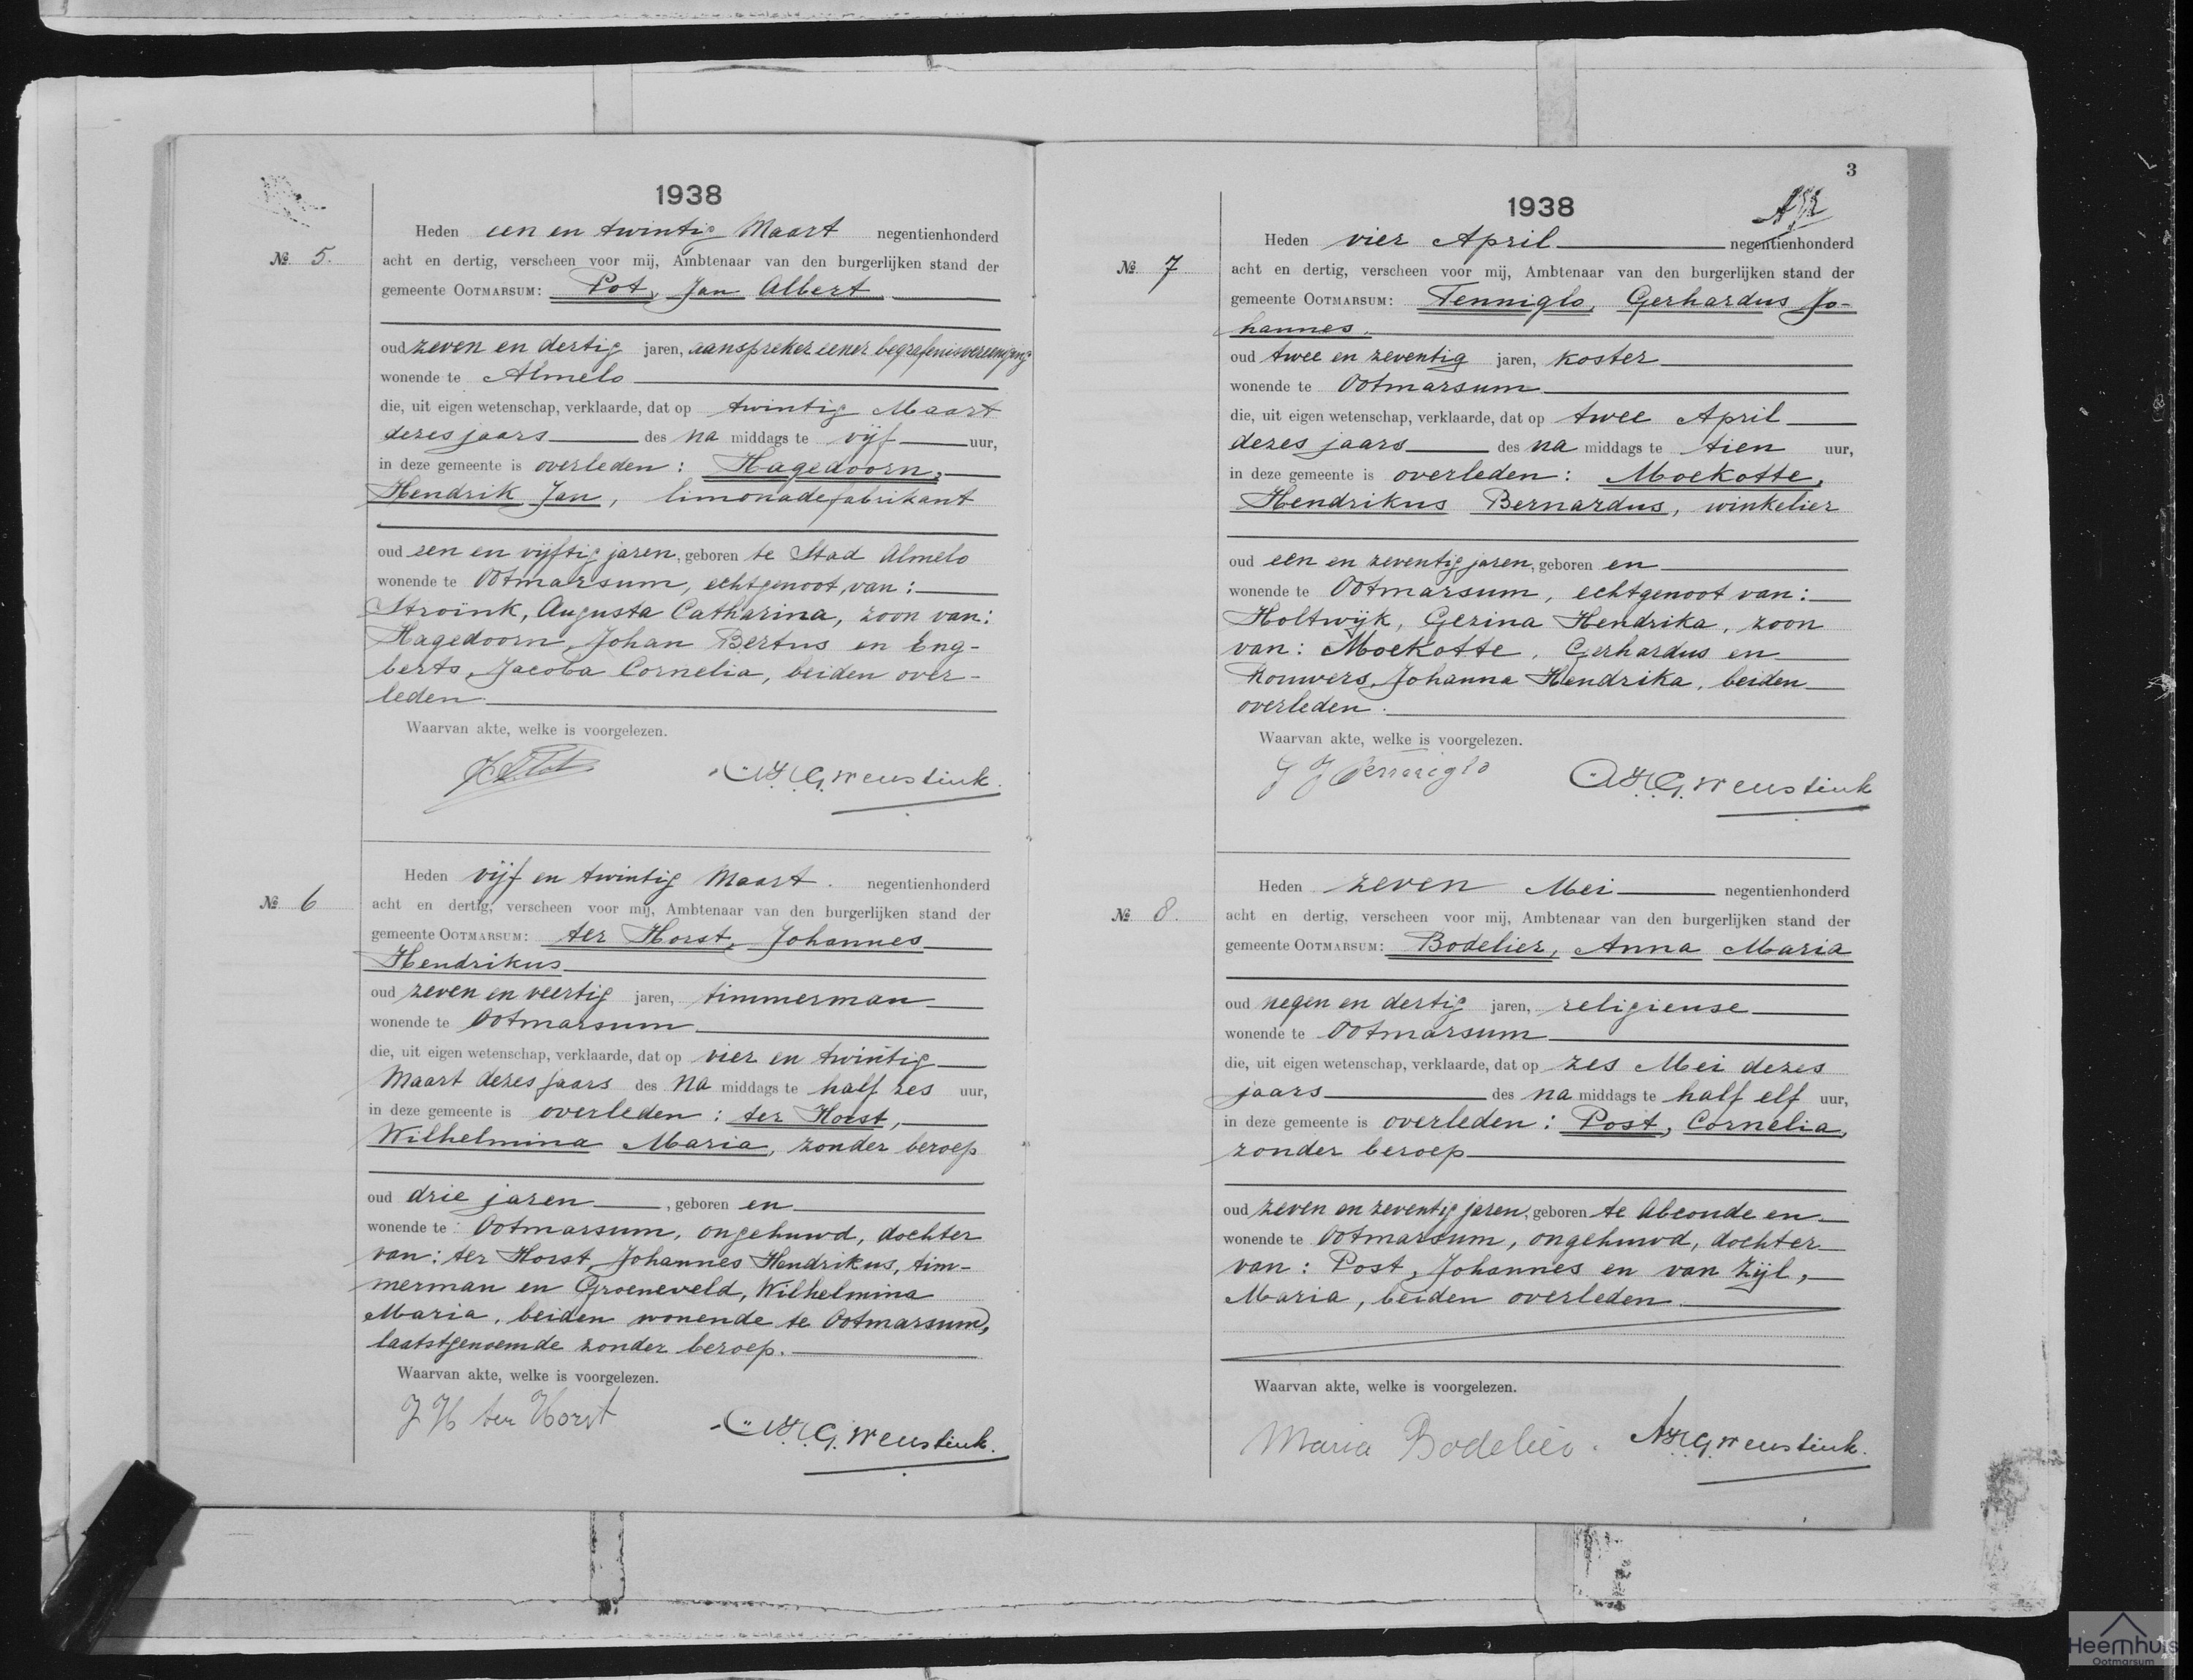 1938
Heden een en twintig Maart negentienhonderd
№ 5.
acht en dertig, verscheen voor mij, Ambtenaar van den burgerlijken stand der
gemeente OOTMARSUM: Pot, Jan Albert
oud zeven en dertig jaren, aanspreker eener begrafenisvereeniging
wonende te Almelo
die, uit eigen wetenschap, verklaarde, dat op twintig Maart
dezes jaars des na middags te vijf uur,
in deze gemeente is overleden: Hagedoorn,
Hendrik Jan, limonadefabrikant
oud een en vijftig jaren, geboren te Stad Almelo
wonende te Ootmarsum, echtgenoot van:
Stroïnk, Augusta Catharina, zoon van:
Hagedoorn, Johan Bertus en Eng-
berts, Jacoba Cornelia, beiden over-
leden.
Waarvan akte, welke is voorgelezen.
Weustink.
Heden vijf en twintig Maart. negentienhonderd
№ 6
acht en dertig, verscheen voor mij, Ambtenaar van den burgerlijken stand der
gemeente OOTMARSUM: ter Horst, Johannes
Hendrikus
oud zeven en veertig jaren, timmerman
wonende te Ootmarsum
die, uit eigen wetenschap, verklaarde, dat op vier en twintig
Maart dezes jaars des na middags te half zes uur,
in deze gemeente is overleden: ter Horst,
Wilhelmina Maria, zonder beroep
oud drie jaren, geboren en
wonende te Ootmarsum, ongehuwd, dochter
van: ter Horst, Johannes Hendrikus, tim-
merman en Groeneveld, Wilhelmina
Maria, beiden wonende te Ootmarsum,
laatstgenoemde zonder beroep.
Waarvan akte, welke is voorgelezen.
J H ter Horst
Weustink.
3
1938
Heden vier April negentienhonderd
№ 7
acht en dertig, verscheen voor mij, Ambtenaar van den burgerlijken stand der
gemeente OOTMARSUM: Tenniglo, Gerhardus Jo-
hannes.
oud twee en zeventig jaren, koster
wonende te Ootmarsum
die, uit eigen wetenschap, verklaarde, dat op twee April
dezes jaars des na middags te tien uur,
in deze gemeente is overleden: Moekotte,
Hendrikus Bernardus, winkelier
oud een en zeventig jaren, geboren en
wonende te Ootmarsum, echtgenoot van:
Holtwijk, Gezina Hendrika, zoon
van: Moekotte, Gerhardus en
Rouwers, Johanna Hendrika, beiden
overleden.
Waarvan akte, welke is voorgelezen.
G J Tenniglo
Weustink
Heden zeven Mei negentienhonderd
№ 8.
acht en dertig, verscheen voor mij, Ambtenaar van den burgerlijken stand der
gemeente OOTMARSUM: Bodelier, Anna Maria
oud negen en dertig jaren, religieuse
wonende te Ootmarsum
die, uit eigen wetenschap, verklaarde, dat op zes Mei dezes
jaars des na middags te half elf uur,
in deze gemeente is overleden: Post, Cornelia,
zonder beroep
oud zeven en zeventig jaren, geboren te Abcoude en
wonende te Ootmarsum, ongehuwd, dochter
van: Post, Johannes en van Zijl,
Maria, beiden overleden.
Waarvan akte, welke is voorgelezen.
Maria Bodelier.
Weustink.
Heemhuis
Ootmarsum